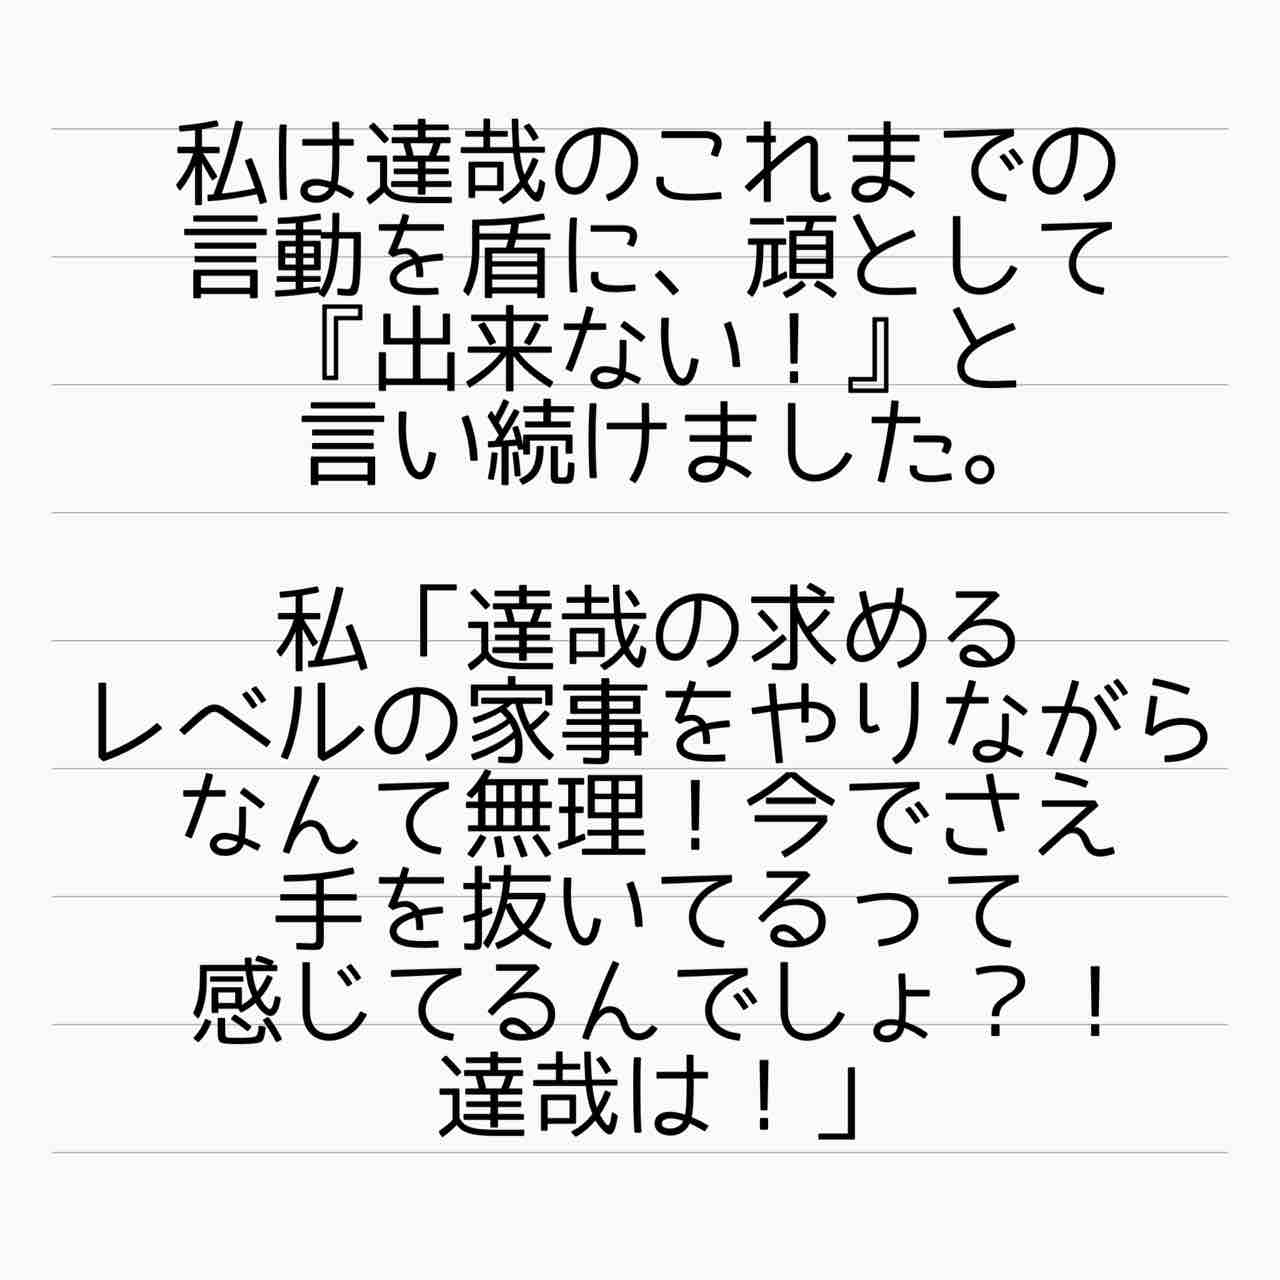 私は達哉のこれまでの
言動を盾に、頑として
『出来ない！』と
言い続けました。
私「達哉の求める
レベルの家事をやりながら
なんて無理！今でさえ
手を抜いてるって
感じてるんでしょ？！
達哉は！」